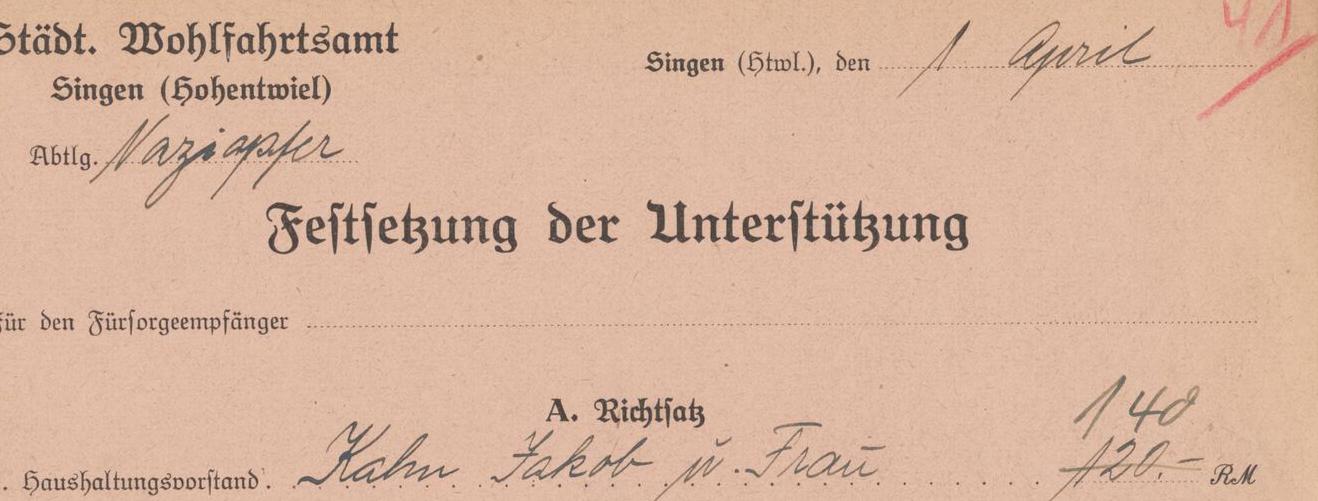 Städt. Wohlfahrtsamt
Singen (Hohentwiel)
Singen (Htwl.), den 1 April
41
Abtlg. Naziopfer
Festsetzung der Unterstützung
für den Fürsorgeempfänger
A. Richtsatz
140
. Haushaltungsvorstand. Kahn Jakob u. Frau 120.- RM